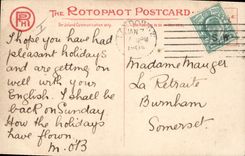 THE ROTOPHOT POSTCARD.
RPH
JAN 2
I hope you have had
pleasant holidays
and are getting on
well with your
English. I shall be
back on Sunday
How the holidays
have flown.
M. OB
Madame Mauger
La Retraite
Burnham
Somerset.